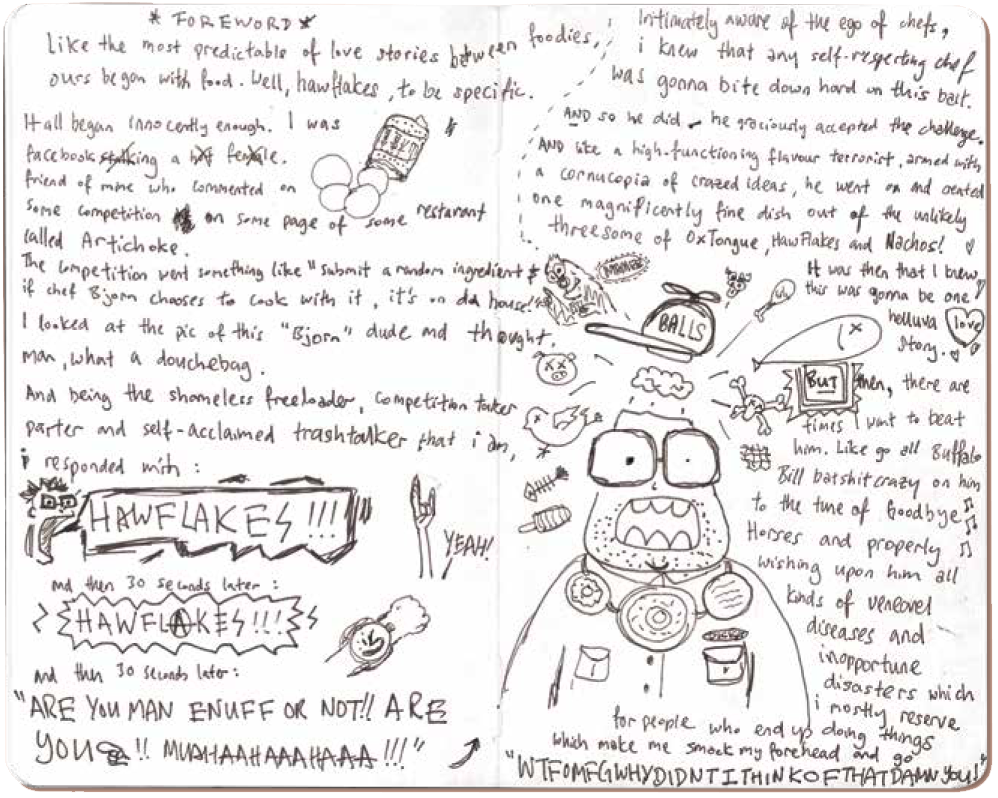 * FOREWORD *
Like the most predictable of love stories between foodies,
ours began with food. Well, hawflakes, to be specific.
It all began innocently enough. I was
facebook stalking a hot female.
friend of mine who commented on
some competition on some page of some restarant
called Artichoke.
The competition went something like "submit a random ingredient &
if chef Bjorn chooses to cook with it, it's on da house!"
I looked at the pic of this "Bjorn" dude and thought,
man, what a douchebag.
And being the shameless freeloader, competition taker
parter and self-acclaimed trashtalker that i am,
i responded with:
HAWFLAKES!!!
YEAH!
and then 30 seconds later:
HAWFLAKES!!!
and then 30 seconds later:
"ARE YOU MAN ENUFF OR NOT!! ARE
YOU !! MUAHAAHAAAHAAA!!!"
Intimately aware of the ego of chefs,
i knew that any self-respecting chef
was gonna bite down hard on this bait.
AND so he did - he graciously accepted the challenge.
AND like a high-functioning flavour terrorist, armed with
a cornucopia of crazed ideas, he went on and created
one magnificently fine dish out of the unlikely
threesome of OxTongue, HawFlakes and Nachos!
It was then that I knew
this was gonna be one
helluva love
story.
BALLS
BUT then, there are
times I want to beat
him. Like go all Buffalo
Bill batshitcrazy on him
to the tune of Goodbye
Horses and properly
wishing upon him all
kinds of venereal
diseases and
inopportune
disasters which
i mostly reserve
for people who end up doing things
which make me smack my forehead and go
"WTFOMFGWHYDIDNTITHINKOFTHATDAMNYOU!"